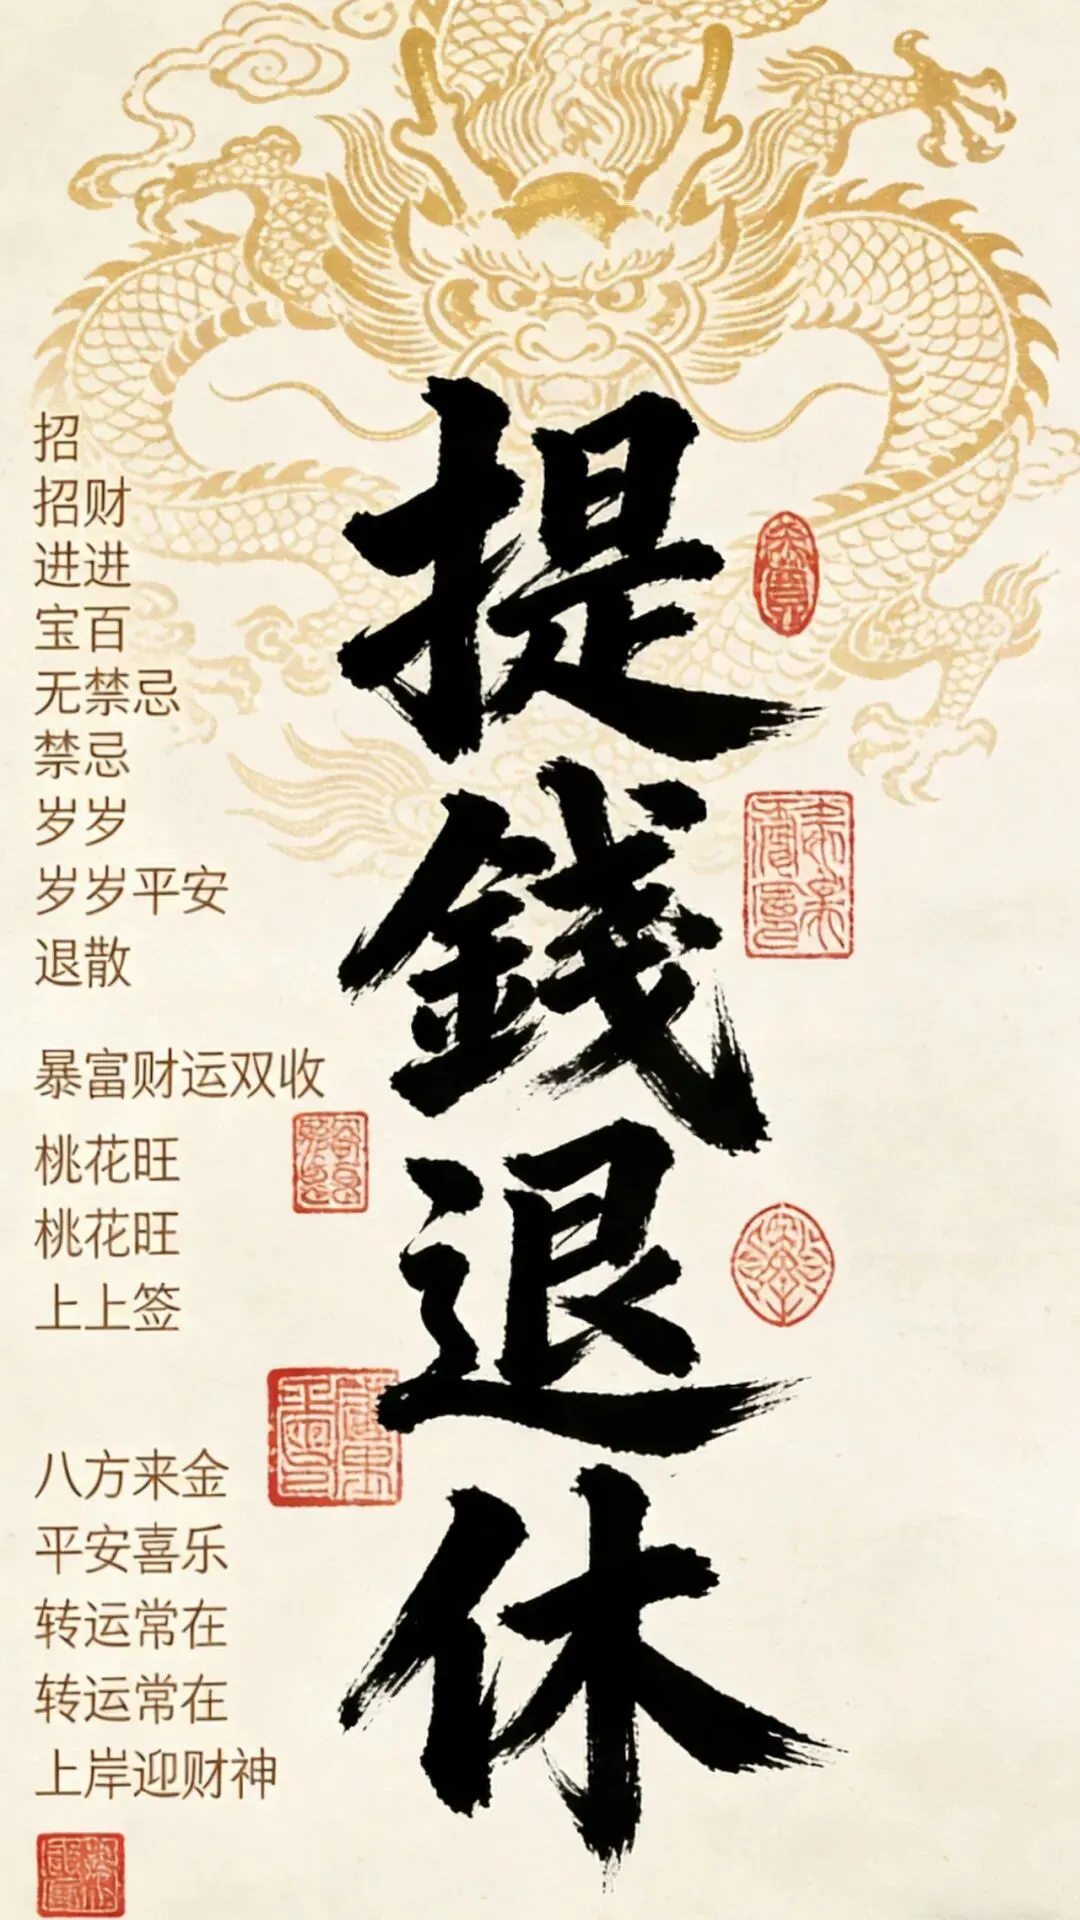 提錢退休
招
招财
进进
宝百
无禁忌
禁忌
岁岁
岁岁平安
退散
暴富财运双收
桃花旺
桃花旺
上上签
八方来金
平安喜乐
转运常在
转运常在
上岸迎财神